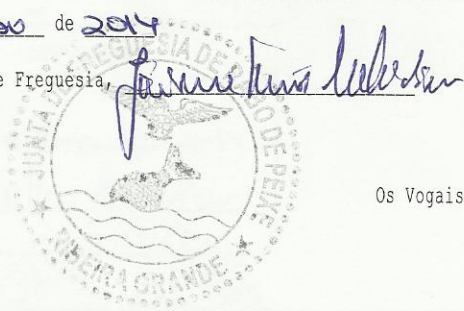 de 2014
e Freguesia,
JUNTA DE FREGUESIA DE RABO DE PEIXE
RIBEIRA GRANDE
Os Vogais